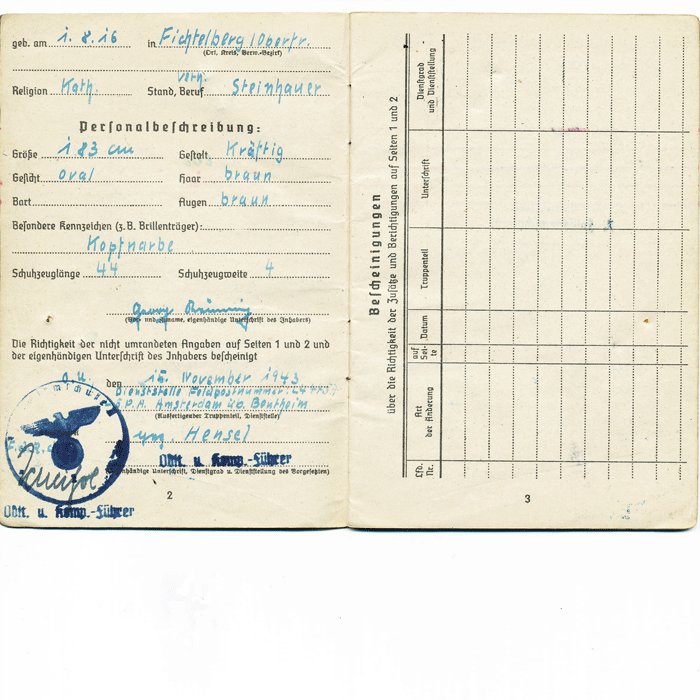 geb. am 1.8.16 in Fichtelberg / Oberfr.
(Ort, Kreis, Verw.-Bezirk)
verh.
Religion Kath. Stand, Beruf Steinhauer
Personalbeschreibung:
Größe 183 cm Gestalt Kräftig
Gesicht oval Haar braun
Bart Augen braun
Besondere Kennzeichen (z.B. Brillenträger):
Kopfnarbe.
Schuhzeuglänge 44 Schuhzeugweite 4
Georg
(Vor- und Zuname, eigenhändige Unterschrift des Inhabers)
Die Richtigkeit der nicht umrandeten Angaben auf Seiten 1 und 2 und
der eigenhändigen Unterschrift des Inhabers bescheinigt
O.U. den November 1943
Dienststelle Feldpostnummer:
Amsterdam üb. Bentheim
(Ausfertigender Truppenteil, Dienststelle)
gez. Hensel
Oblt. u. Komp.-Führer
(Eigenhändige Unterschrift, Dienstgrad u. Dienststellung des Vorgesetzten)
Oblt. u. Komp.-Führer
2
Bescheinigungen
über die Richtigkeit der Zusätze und Berichtigungen auf Seiten 1 und 2
Lfd. Nr.
Art der Änderung
auf Seite
Datum
Truppenteil
Unterschrift
Dienstgrad und Dienststellung
3